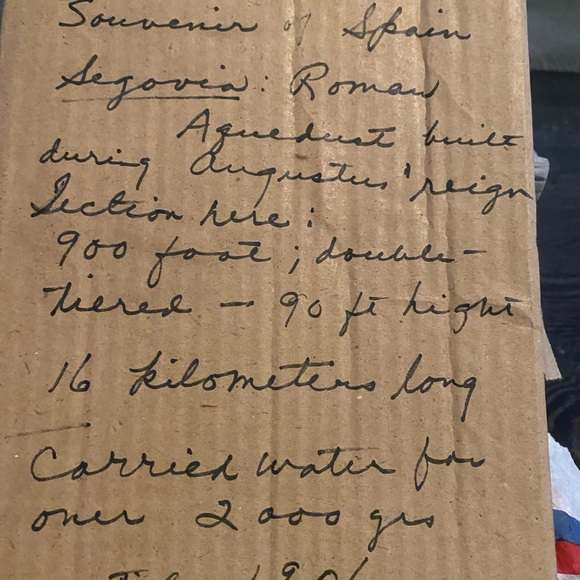 Souvenir of Spain
Segovia: Roman
Aquedust built
during Augustus' reign
Section here:
900 foot; double-
tiered — 90 ft hight
16 kilometers long
Carried water for
over 2000 yrs